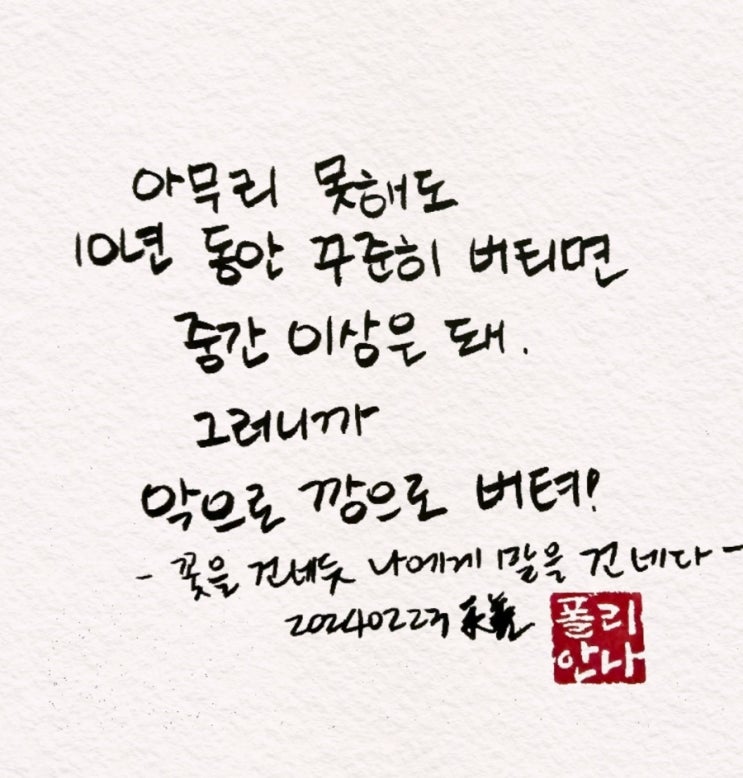 아무리 못해도
10년 동안 꾸준히 버티면
중간 이상은 돼.
그러니까
악으로 깡으로 버텨!
- 꽃을 건네듯 나에게 말을 건네다 -
20240223
폴리
안나